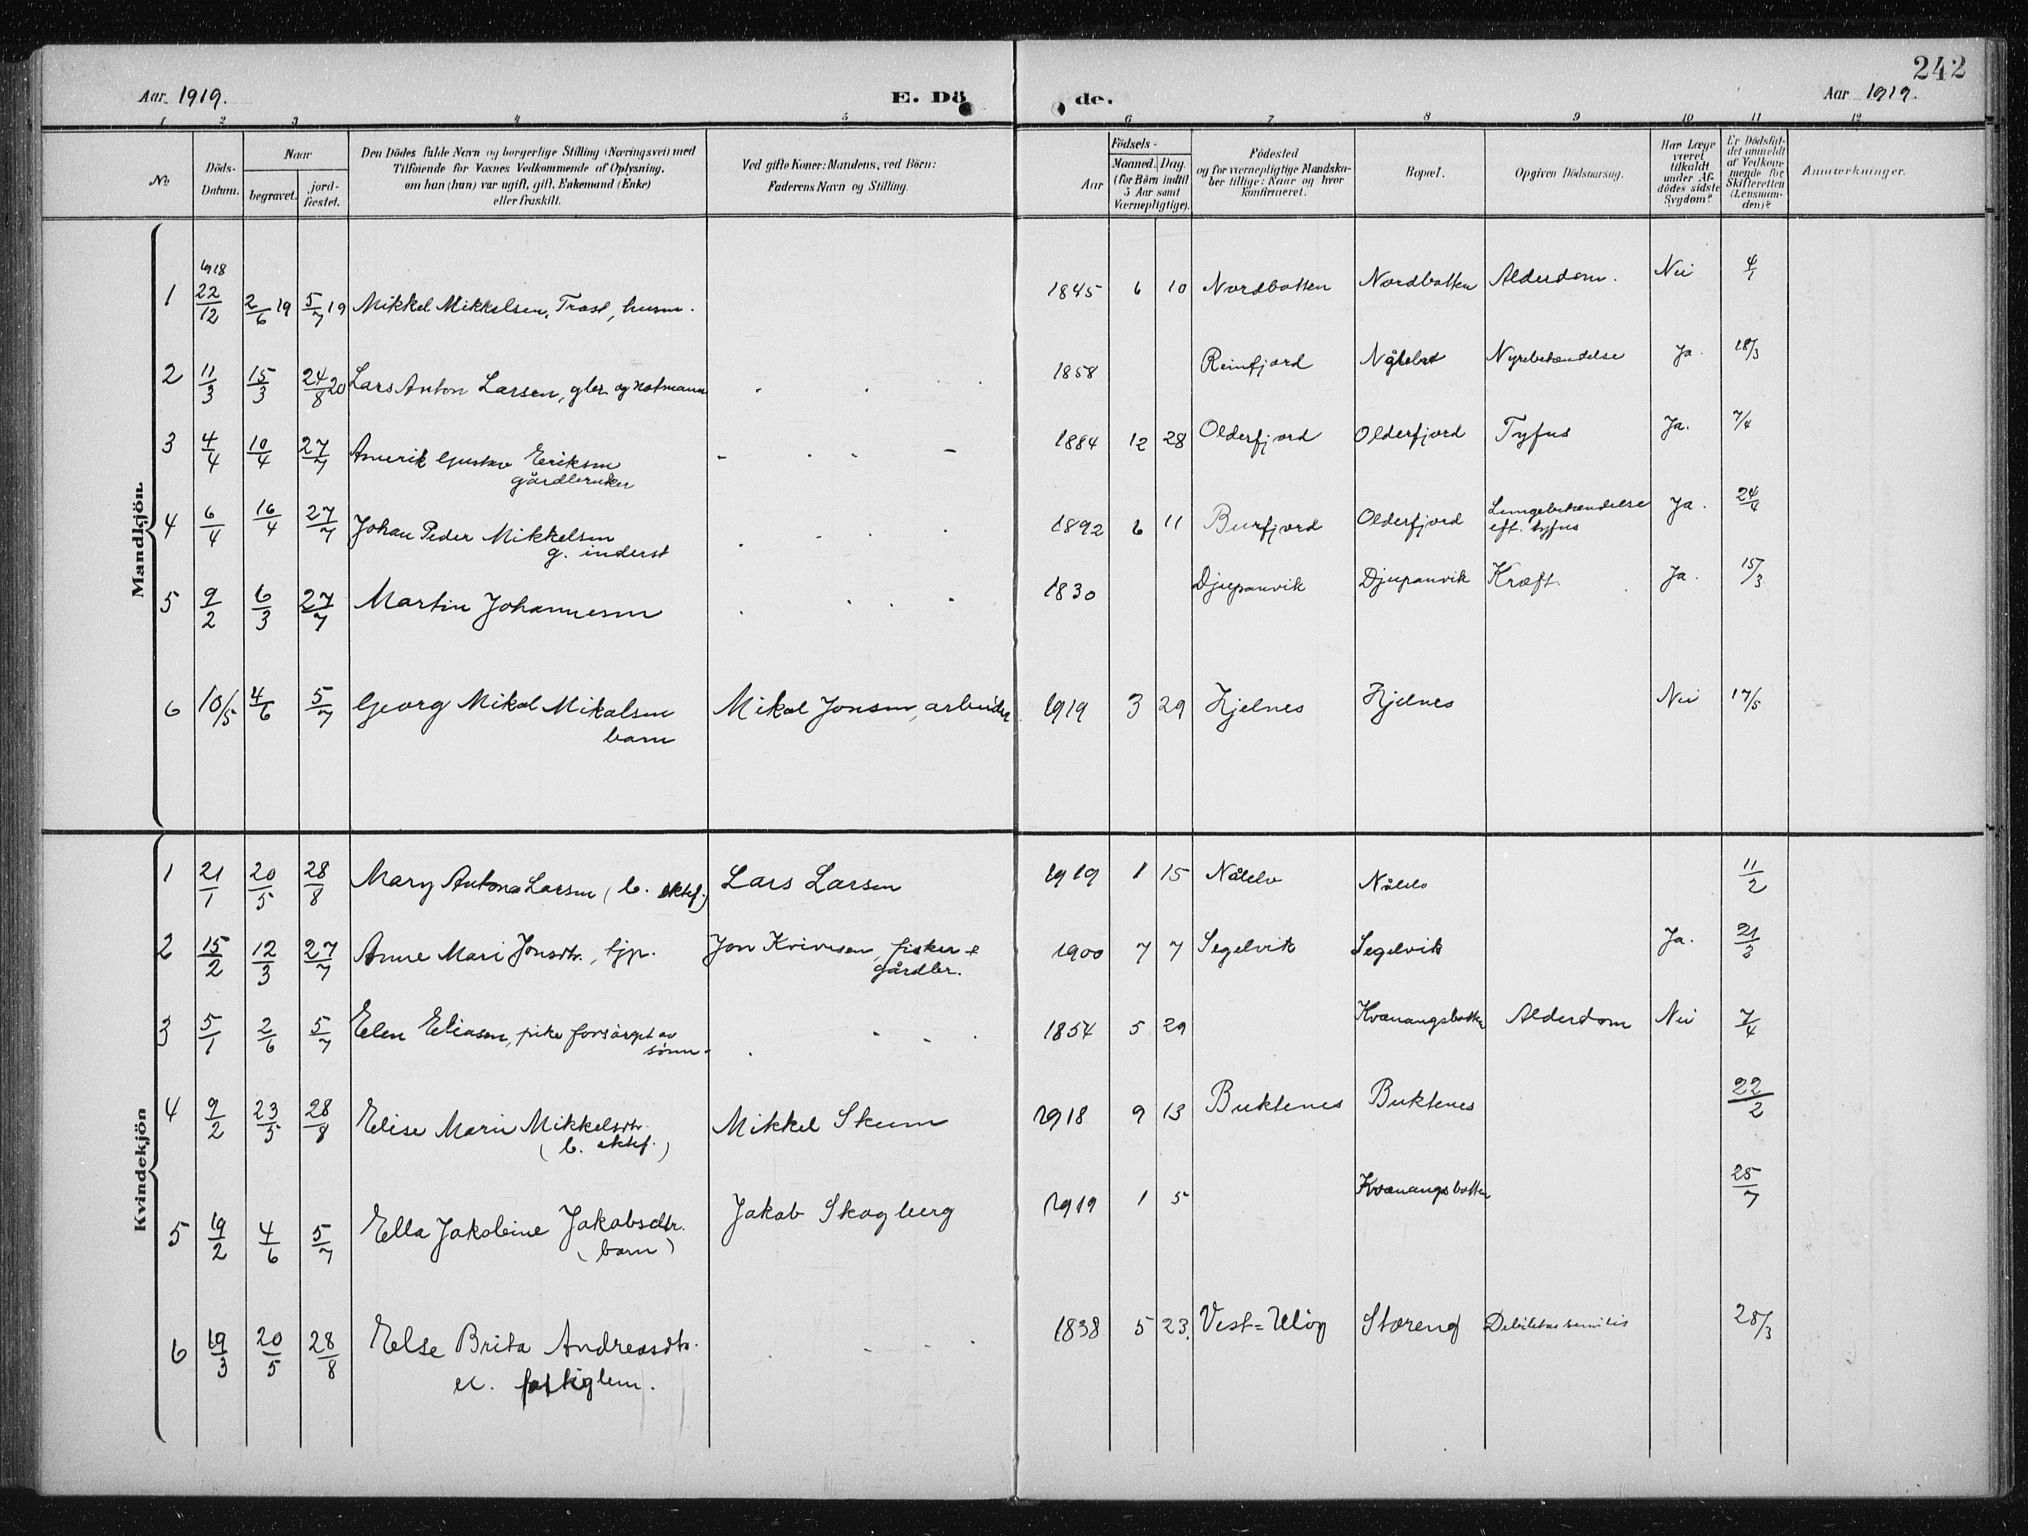 242
Aar 1919. E. Dö de. Aar 1919.
1 2 3 4 5 6 7 8 9 10 11 12
No.
Döds-Datum.
Naar
begravet. jord-fæstet.
Den Dödes fulde Navn og borgerlige Stilling (Næringsvei) med
Tilföiende for Voxnes Vedkommende af Oplysning,
om han (hun) var ugift, gift, Enkemand (Enke)
eller fraskilt.
Ved gifte Koner: Mandens, ved Börn:
Faderens Navn og Stilling.
Födsels-
Aar Maaned. Dag.
(for Börn indtil
5 Aar samt
Værnepligtige).
Födested
og for værnepligtige Mandska-
ber tillige: Naar og hvor
konfirmeret.
Bopæl.
Opgiven Dödsaarsag.
Har Læge
været
tilkaldt
under Af-
dödes sidste
Sygdom?
Er Dödsfal-
det anmeldt
af Vedkom-
mende for
Skifteretten
(Lensman-
den)?
Anmærkninger.
Mandkjön.
1 1918 22/12 2/6 19 5/7 19 Mikkel Mikkelsen, Trast, husm. 1845 6 10 Nordbotten Nordbotten Alderdom. Nei 4/1
2 11/3 15/3 24/8 20 Lars Anton Larsen, gbr. og notmann 1858 Reinfjord Nyrebetændelse Ja. 18/3
3 4/4 10/4 27/7 Amerik Gustav Eriksen 1884 12 28 Olderfjord Olderfjord Tyfus Ja. 7/4
gårdbruker
4 6/4 16/4 27/7 Johan Peder Mikkelsen 1892 6 11 Burfjord Olderfjord Lungebetændelse Ja. 24/4
g. inderst eft. tyfus
5 9/2 6/3 27/7 Martin Johannesen 1830 Djupanvik Djupanvik Kræft. Ja. 15/3
6 10/5 4/6 5/7 Georg Mikal Mikalsen Mikal Jonsen, arbeider 1919 3 29 Kjelnes Kjelnes Nei 17/5
barn
Kvindekjön
1 21/1 20/5 28/8 Mary Antona Larsen (b. ektef.) Lars Larsen 1919 1 15
11/2
2 15/2 12/3 27/7 Anne Mari Jonsdtr., tjp. Jon Krivisen, fisker + 1900 7 7 Segelvik Segelvik Ja. 21/3
gårdbr.
3 5/1 2/6 5/7 Elen Eliasen, pike forsörget av 1854 5 29 Kvænangsbotten Alderdom Nei 7/4
sönn.
4 9/2 23/5 28/8 Elise Marie Mikkelsdtr. Mikkel Skum 1918 9 13 Buktenes Buktenes 22/2
(b. ektef.)
5 19/2 4/6 5/7 Ella Jakobine Jakobsdtr. Jakob Skogberg 1919 1 5 Kvænangsbotten 25/7
(barn)
6 19/3 20/5 28/8 Else Brita Andreasdtr. 1838 5 23. Vest-Uløy Storeng Debilitas senilis 28/3